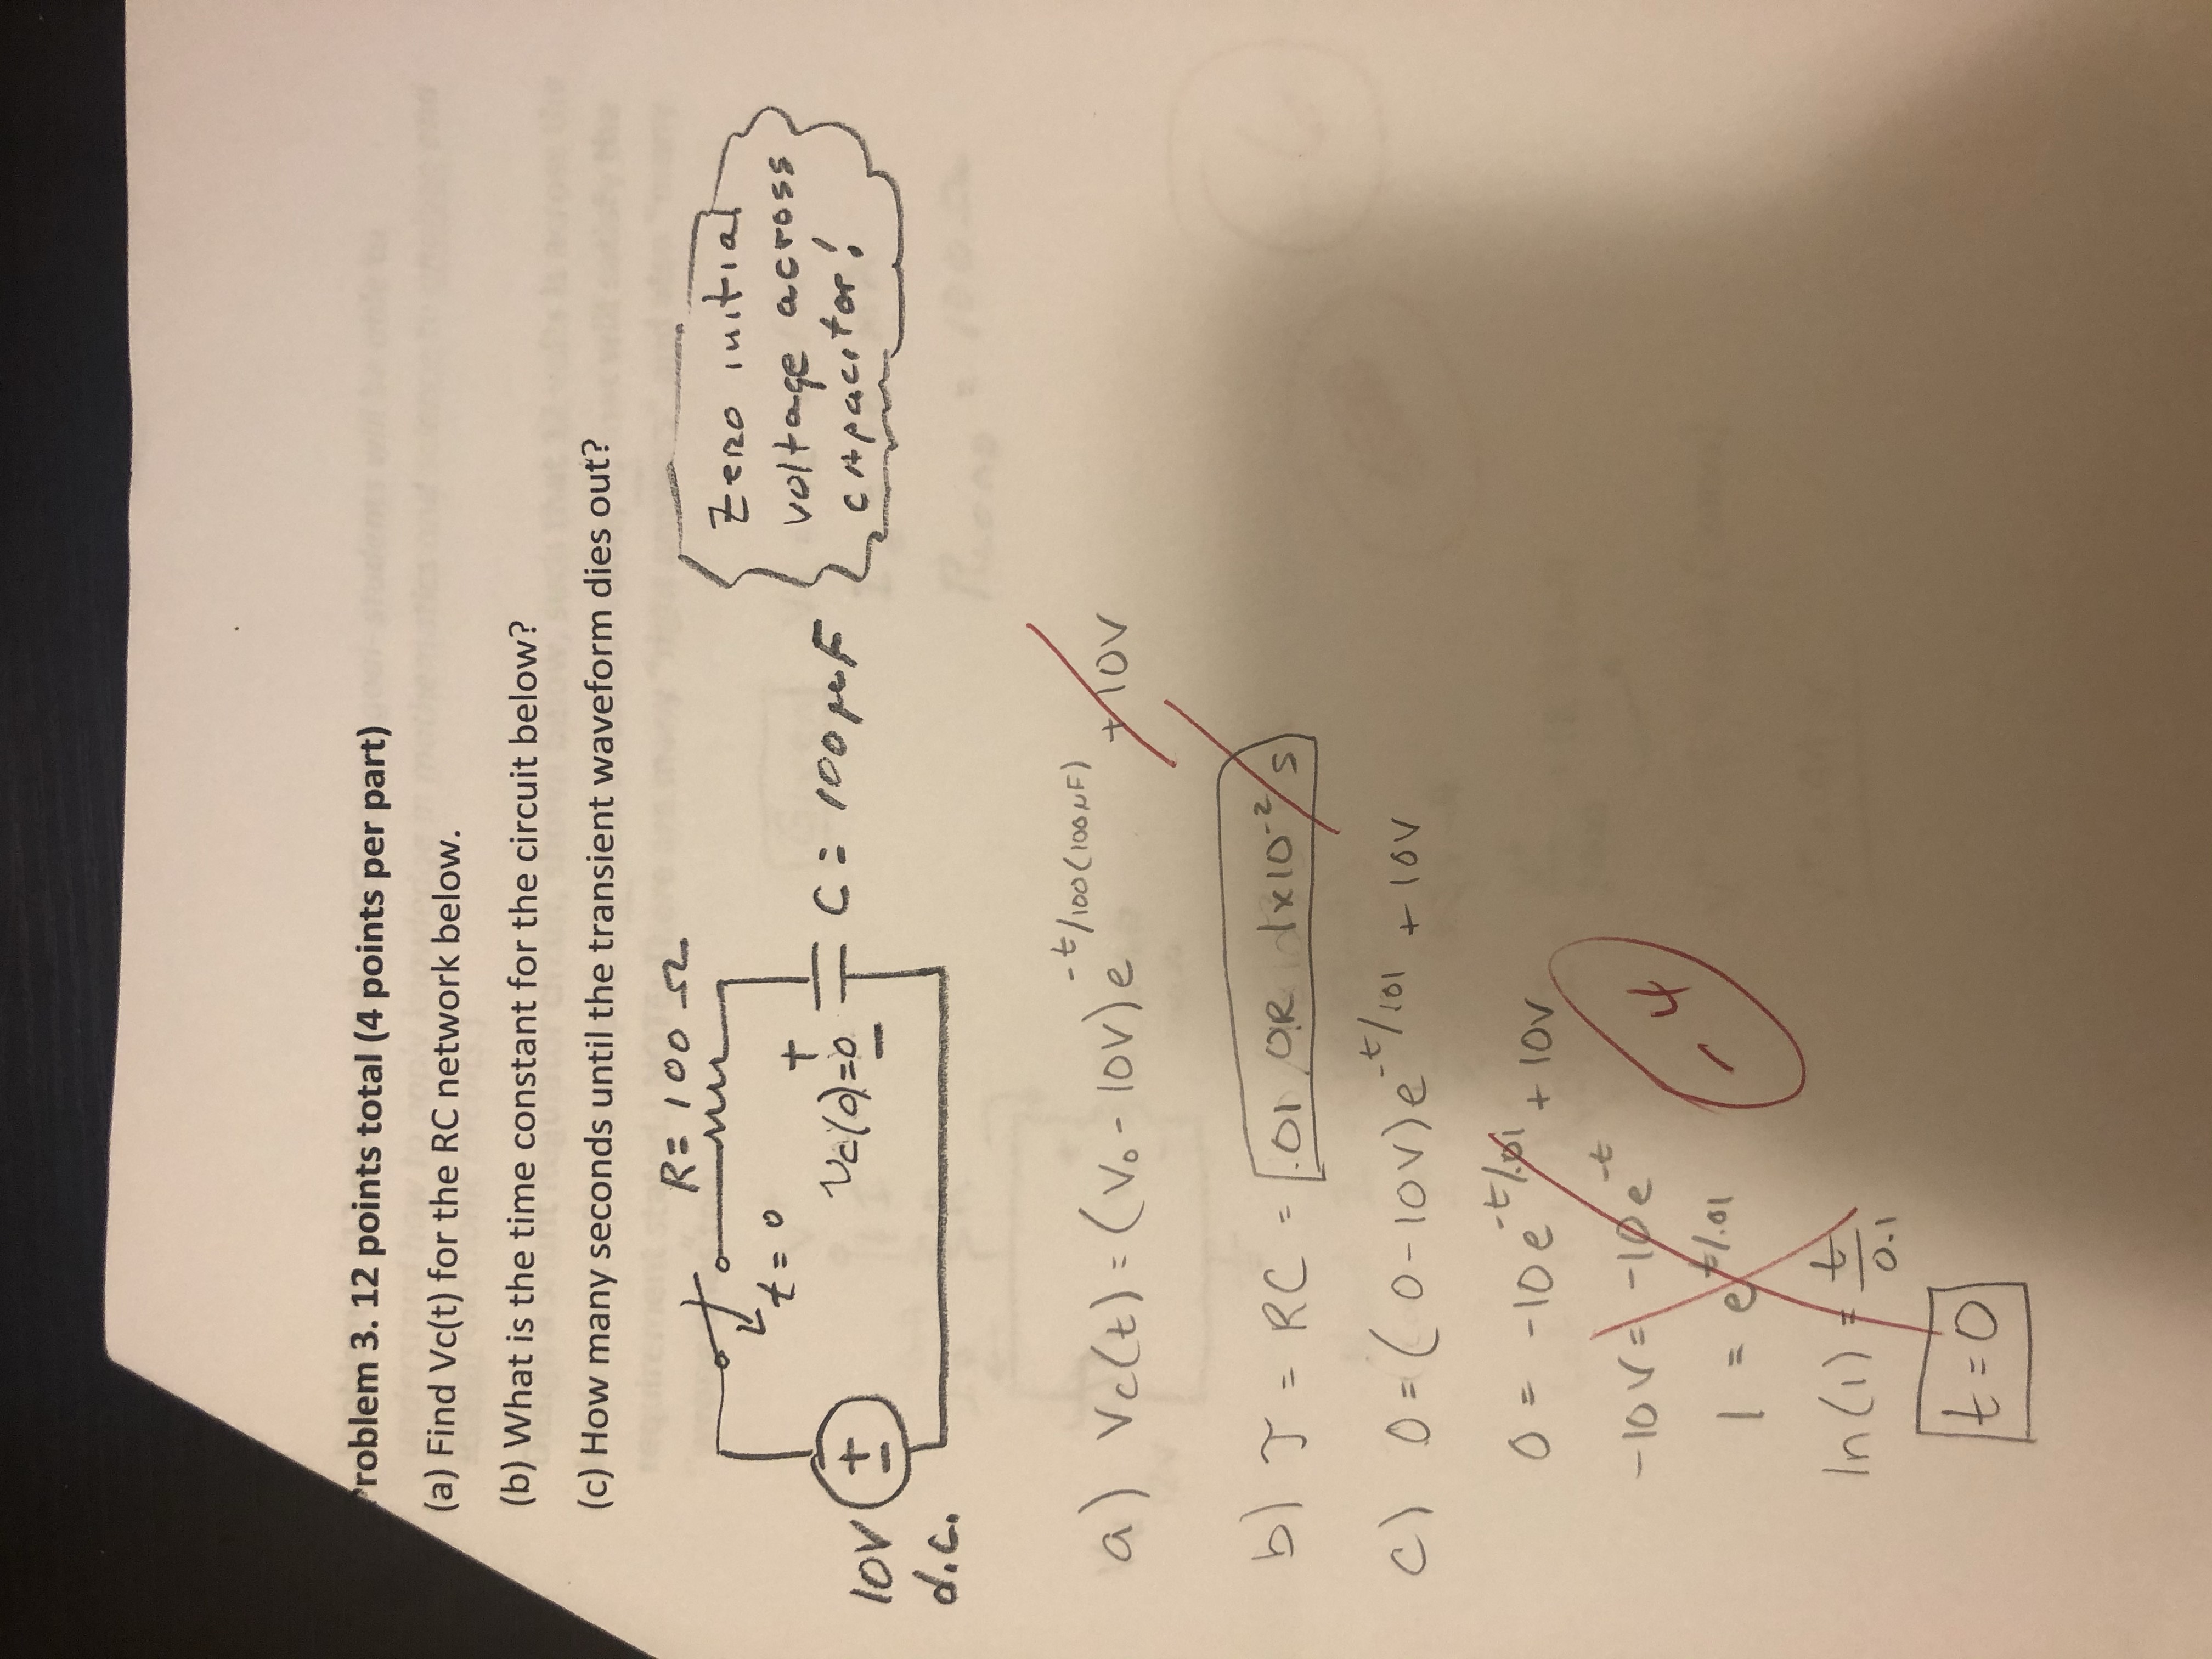 roblem 3. 12 points total (4 points per part)
(a) Find Vc(t) for the RC network below.
(b) What is the time constant for the circuit below?
(c) How many seconds until the transient waveform dies out?
R = 100 Ω
t = 0
+
Vc(0)=0
−
C = 100 μF
+
−
10V
d.c.
Zero initial
voltage across
capacitor!
a) Vc(t) = (V₀ - 10V)e^-t/100(100μF) + 10V
b) τ = RC = .01 OR 1x10⁻² s
c) 0 = ( 0 - 10V)e^-t/101 + 10V
0 = -10e^-t/.01 + 10V
-10V = -10e^-t
1 = e^t/.01
ln(1) = t/0.1
-4
t = 0